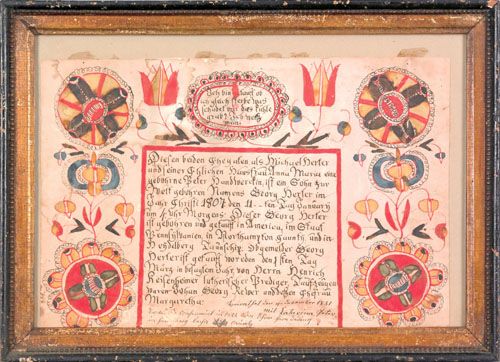 Ich bin getauft ob
ich gleich sterbe was
schadet mir das kühle
grab ich weiß
Diesen beiden Eheleuten als Michael Herler
und seiner Ehlichen Hausfrau Anna Maria eine
gebohrne Peter Handwerkin, ist ein Sohn zur
Welt gebohren Namens Georg Herler im
Jahr Christi 1807 den 11ten Tag January
um 4 Uhr Morgens Dieser Georg Herler
ist gebohren und getauft in America, im Staat
Pennsylvanien, in Northampton Caunty, und in
Heydelberg Taunschip. Obgemelder Georg
Herler ist getauft worden den 1sten Tag
März im besagten Jahr von Herrn Henrich
lutherischer Prediger, Taufzeugen
waren Johan Georg Reber und dessen Ehefrau
Margaretha: